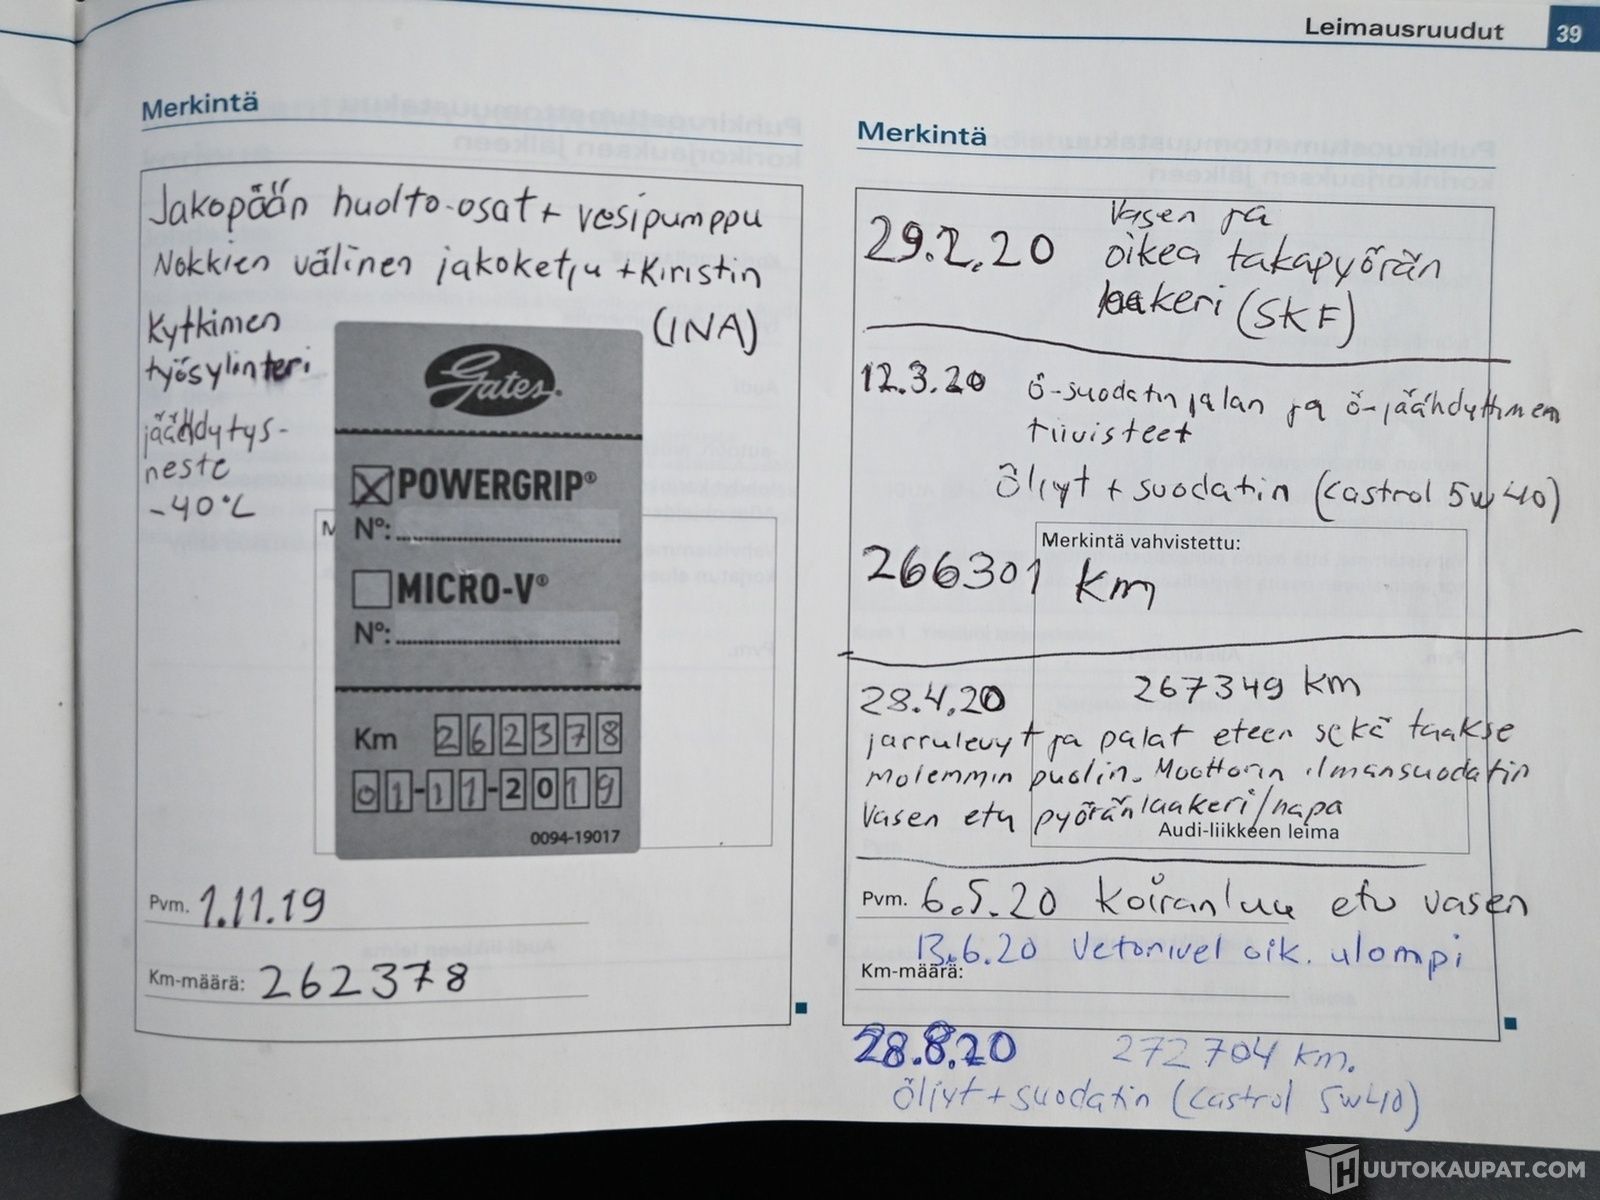 Leimausruudut 39
Merkintä
Jakopään huolto-osat + vesipumppu
Nokkien välinen jakoketju + kiristin
(INA)
Kytkimen
työsylinteri
jäähdytys-
neste
-40°C
Gates.
POWERGRIP®
N°:
MICRO-V®
N°:
Km 262378
01-11-2019
0094-19017
Pvm. 1.11.19
Km-määrä: 262378
Merkintä
29.2.20 Vasen ja
oikea takapyörän
laakeri (SKF)
12.3.20 Ö-suodatin jalan ja ö-jäähdyttimen
tiivisteet
Öljyt + suodatin (Castrol 5w40)
Merkintä vahvistettu:
266301 km
28.4.20 267349 km
jarrulevyt ja palat eteen sekä taakse
molemmin puolin. Moottorin ilmansuodatin
Vasen etu pyöränlaakeri/napa
Audi-liikkeen leima
Pvm. 6.5.20 Koiranluu etu vasen
13.6.20 Vetonivel oik. ulompi
Km-määrä:
28.8.20 272704 km.
Öljyt + suodatin (Castrol 5w40)
HUUTOKAUPAT.COM